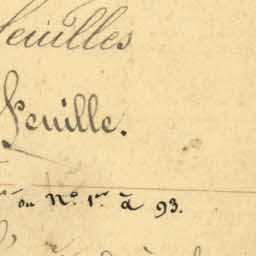 feuilles
feuille.
ou Nº 1er à 93.